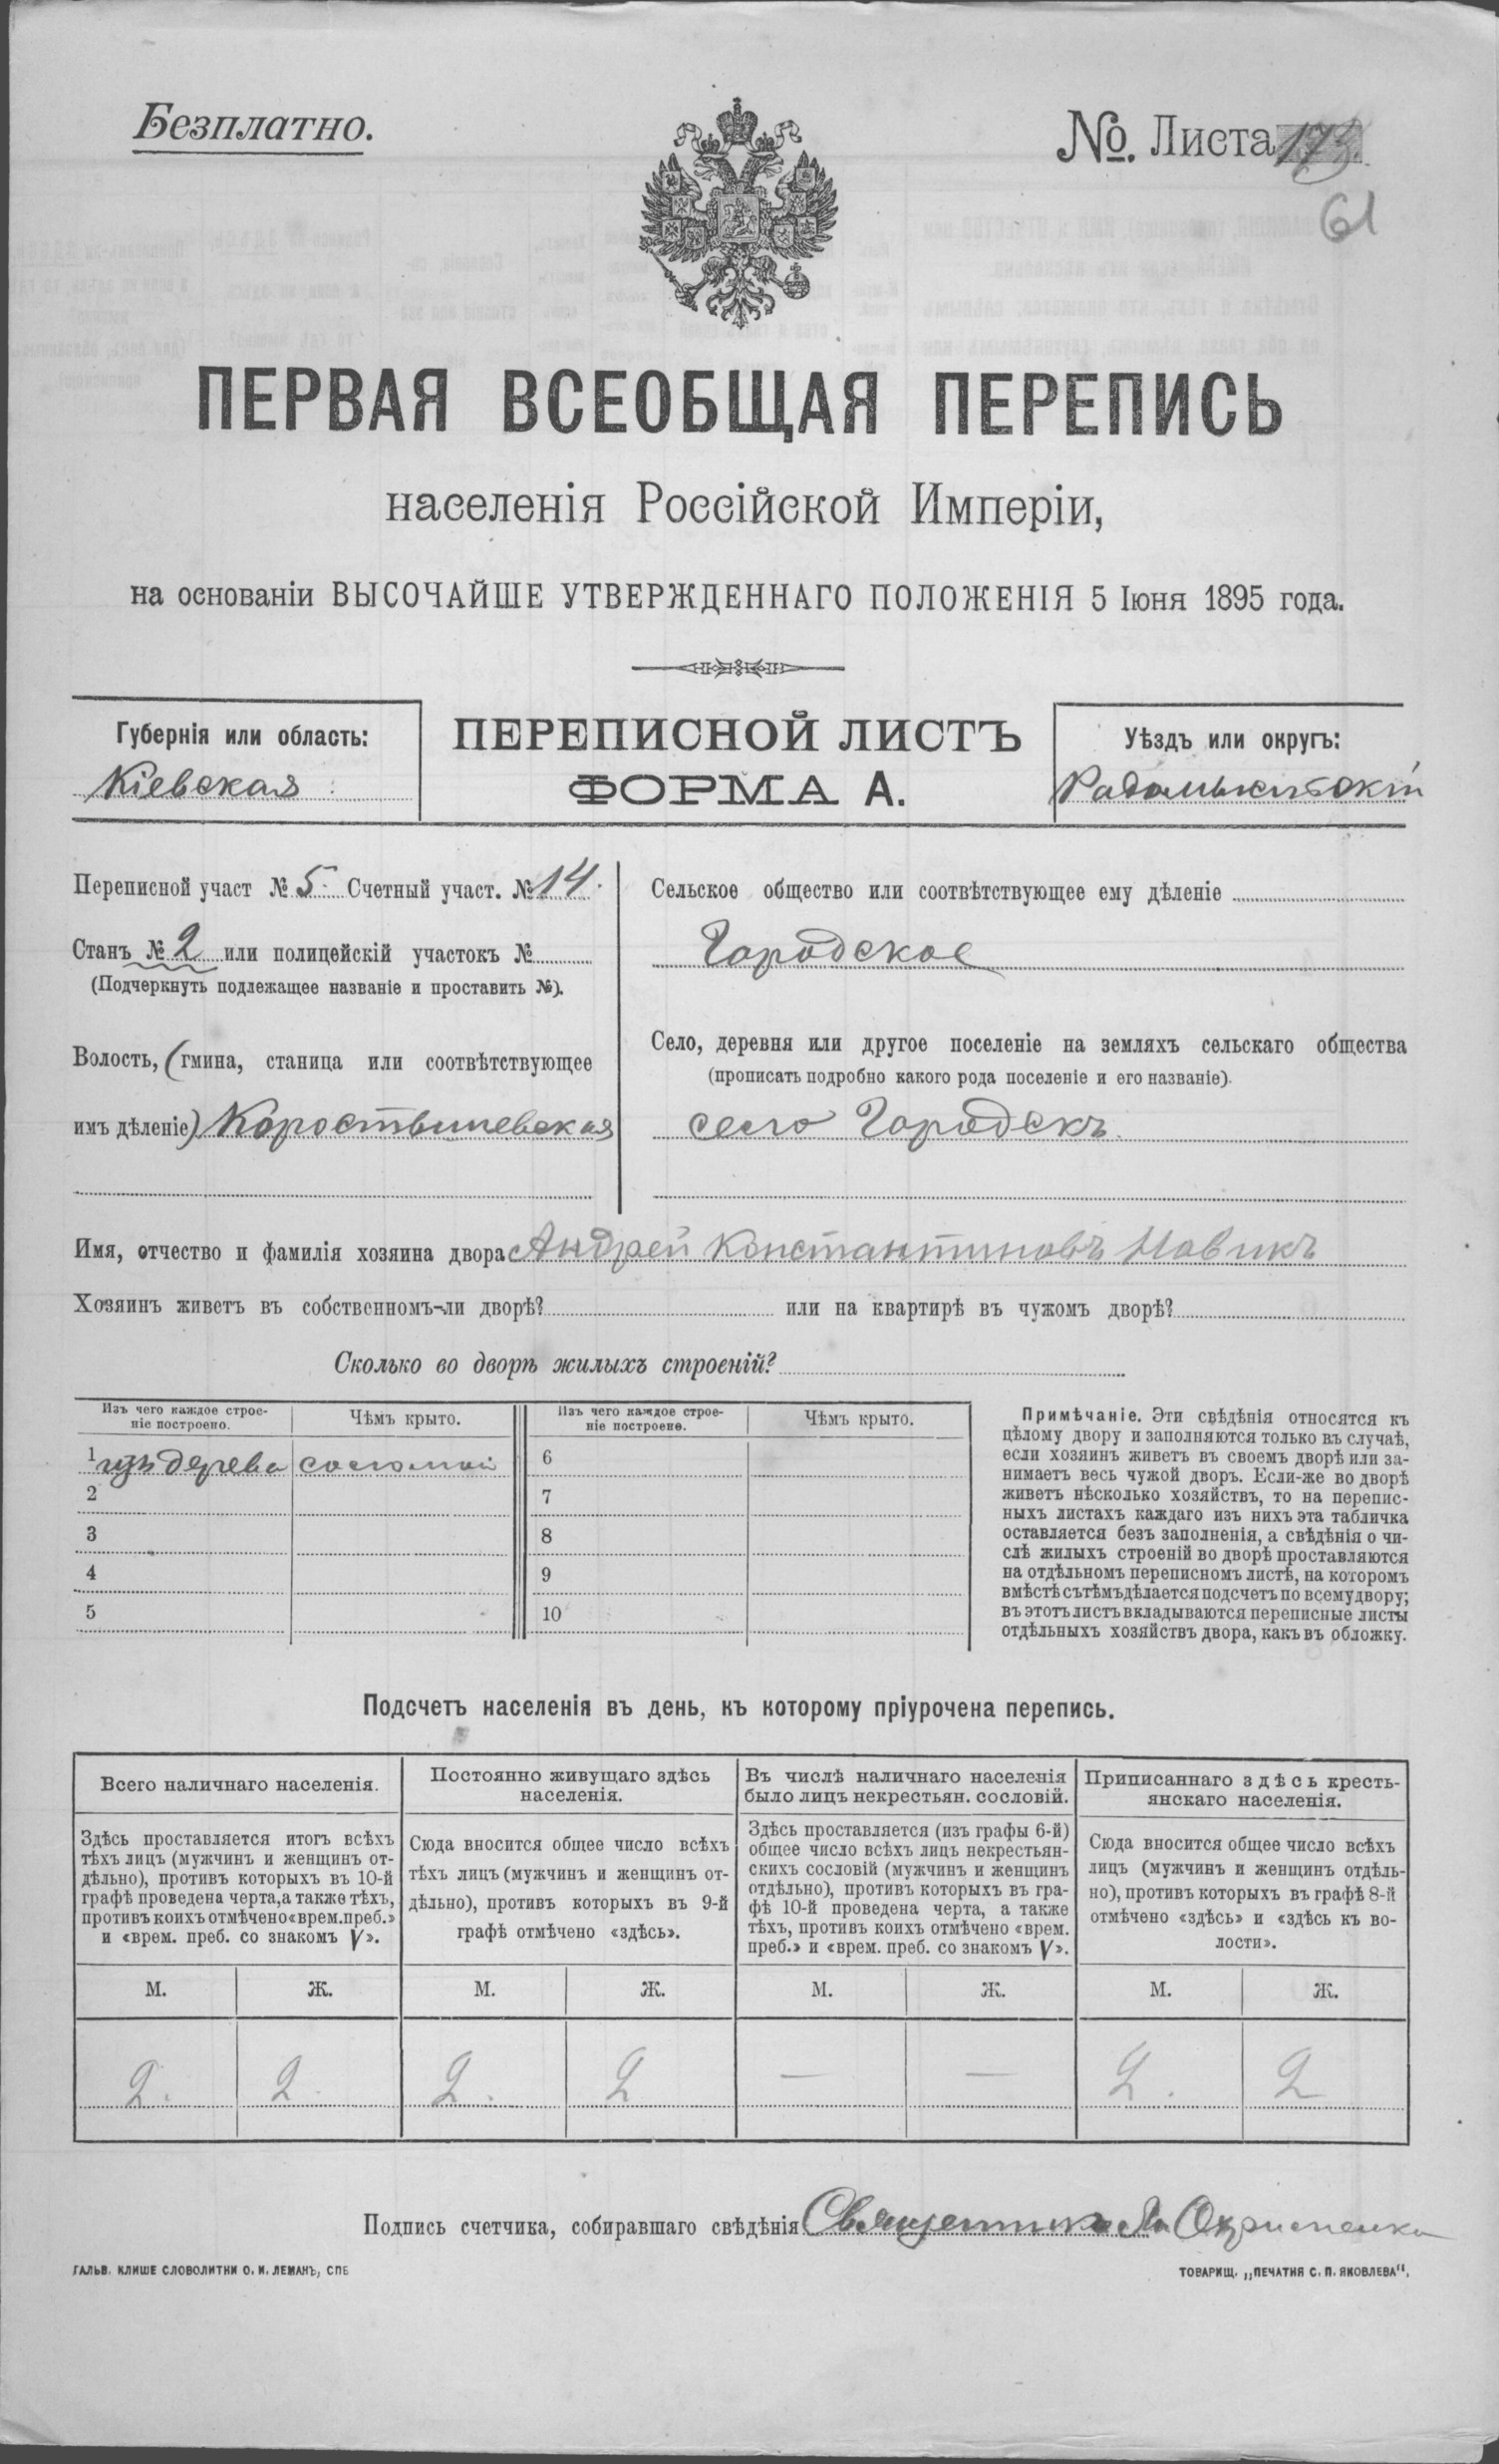 Безплатно.
№. Листа
61
ПЕРВАЯ ВСЕОБЩАЯ ПЕРЕПИСЬ
населенія Россійской Имперіи,
на основаніи ВЫСОЧАЙШЕ УТВЕРЖДЕННАГО ПОЛОЖЕНІЯ 5 Іюня 1895 года.
Губернія или область:
Кіевская
ПЕРЕПИСНОЙ ЛИСТЪ
ФОРМА А.
Уѣздъ или округъ:
Радомысльскій
Переписной участ № 5 Счетный участ. № 14.
Станъ № 2 или полицейскій участокъ №
(Подчеркнуть подлежащее названіе и проставить №).
Волость, (гмина, станица или соотвѣтствующее
имъ дѣленіе) Коростышевская
Сельское общество или соотвѣтствующее ему дѣленіе
Городское
Село, деревня или другое поселеніе на земляхъ сельскаго общества
(прописать подробно какого рода поселеніе и его названіе).
село Городскъ
Имя, отчество и фамилія хозяина двора Андрей Константиновъ Новикъ
Хозяинъ живетъ въ собственномъ-ли дворѣ? или на квартирѣ въ чужомъ дворѣ?
Сколько во дворѣ жилыхъ строеній?
Изъ чего каждое строе-
ніе построено.
Чѣмъ крыто.
Изъ чего каждое строе-
ніе построено.
Чѣмъ крыто.
1 изъ дерева соломой 6
2 7
3 8
4 9
5 10
Примѣчаніе. Эти свѣдѣнія относятся къ
цѣлому двору и заполняются только въ случаѣ,
если хозяинъ живетъ въ своемъ дворѣ или за-
нимаетъ весь чужой дворъ. Если-же во дворѣ
живетъ нѣсколько хозяйствъ, то на перепис-
ныхъ листахъ каждаго изъ нихъ эта табличка
оставляется безъ заполненія, а свѣдѣнія о чи-
слѣ жилыхъ строеній во дворѣ проставляются
на отдѣльномъ переписномъ листѣ, на которомъ
вмѣстѣ съ тѣмъ дѣлается подсчетъ по всему двору;
въ этотъ листъ вкладываются переписные листы
отдѣльныхъ хозяйствъ двора, какъ въ обложку.
Подсчетъ населенія въ день, къ которому пріурочена перепись.
Всего наличнаго населенія.
Здѣсь проставляется итогъ всѣхъ
тѣхъ лицъ (мужчинъ и женщинъ от-
дѣльно), противъ которыхъ въ 10-й
графѣ проведена черта, а также тѣхъ,
противъ коихъ отмѣчено «врем. преб.»
и «врем. преб. со знакомъ V».
Постоянно живущаго здѣсь
населенія.
Сюда вносится общее число всѣхъ
тѣхъ лицъ (мужчинъ и женщинъ от-
дѣльно), противъ которыхъ въ 9-й
графѣ отмѣчено «здѣсь».
Въ числѣ наличнаго населенія
было лицъ некрестьян. сословій.
Здѣсь проставляется (изъ графы 6-й)
общее число всѣхъ лицъ некрестьян-
скихъ сословій (мужчинъ и женщинъ
отдѣльно), противъ которыхъ въ гра-
фѣ 10-й проведена черта, а также
тѣхъ, противъ коихъ отмѣчено «врем.
преб.» и «врем. преб. со знакомъ V».
Приписаннаго здѣсь кресть-
янскаго населенія.
Сюда вносится общее число всѣхъ
лицъ (мужчинъ и женщинъ отдѣль-
но), противъ которыхъ въ графѣ 8-й
отмѣчено «здѣсь» и «здѣсь къ во-
лости».
М. Ж. М. Ж. М. Ж. М. Ж.
2. 2. 2. 2 — — 2. 2
Подпись счетчика, собиравшаго свѣдѣнія Священникъ
ГАЛЬВ. КЛИШЕ СЛОВОЛИТНИ О. И. ЛЕМАНЪ, СПБ
ТОВАРИЩ. „ПЕЧАТНЯ С. П. ЯКОВЛЕВА".